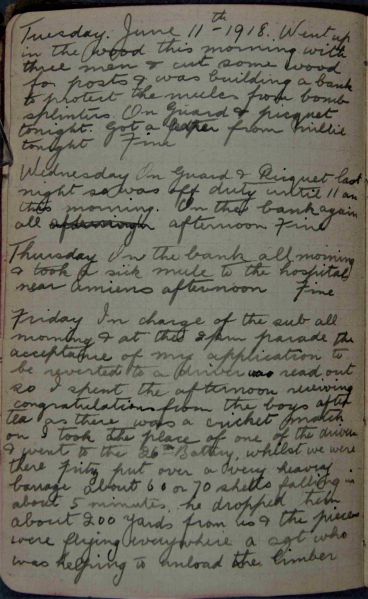 Tuesday. June 11th - 1918. Went up
in the wood this morning with
three men & cut some wood
for posts & was building a bank
to protect the mules from bomb
splinters. On Guard & picquet
tonight. Got a letter from Millie
tonight Fine
Wednesday On Guard & Picquet last
night so was off duty until 11 am
this morning. On the bank again
all afternoon afternoon Fine
Thursday On the bank all morning
& took a sick mule to the hospital
near Amiens afternoon Fine
Friday In charge of the sub all
morning & at the 2 pm parade the
acceptance of my application to
be reverted to a driver was read out
so I spent the afternoon receiving
congratulations from the boys after
tea as there was a cricket match
on I took the place of one of the drivers
& went to the Battery, whilst we were
there Fritz put over a very heavy
barrage about 60 or 70 shells falling in
about 5 minutes, he dropped them
about 200 yards from us & the pieces
were flying everywhere a sgt who
was helping to unload the limber